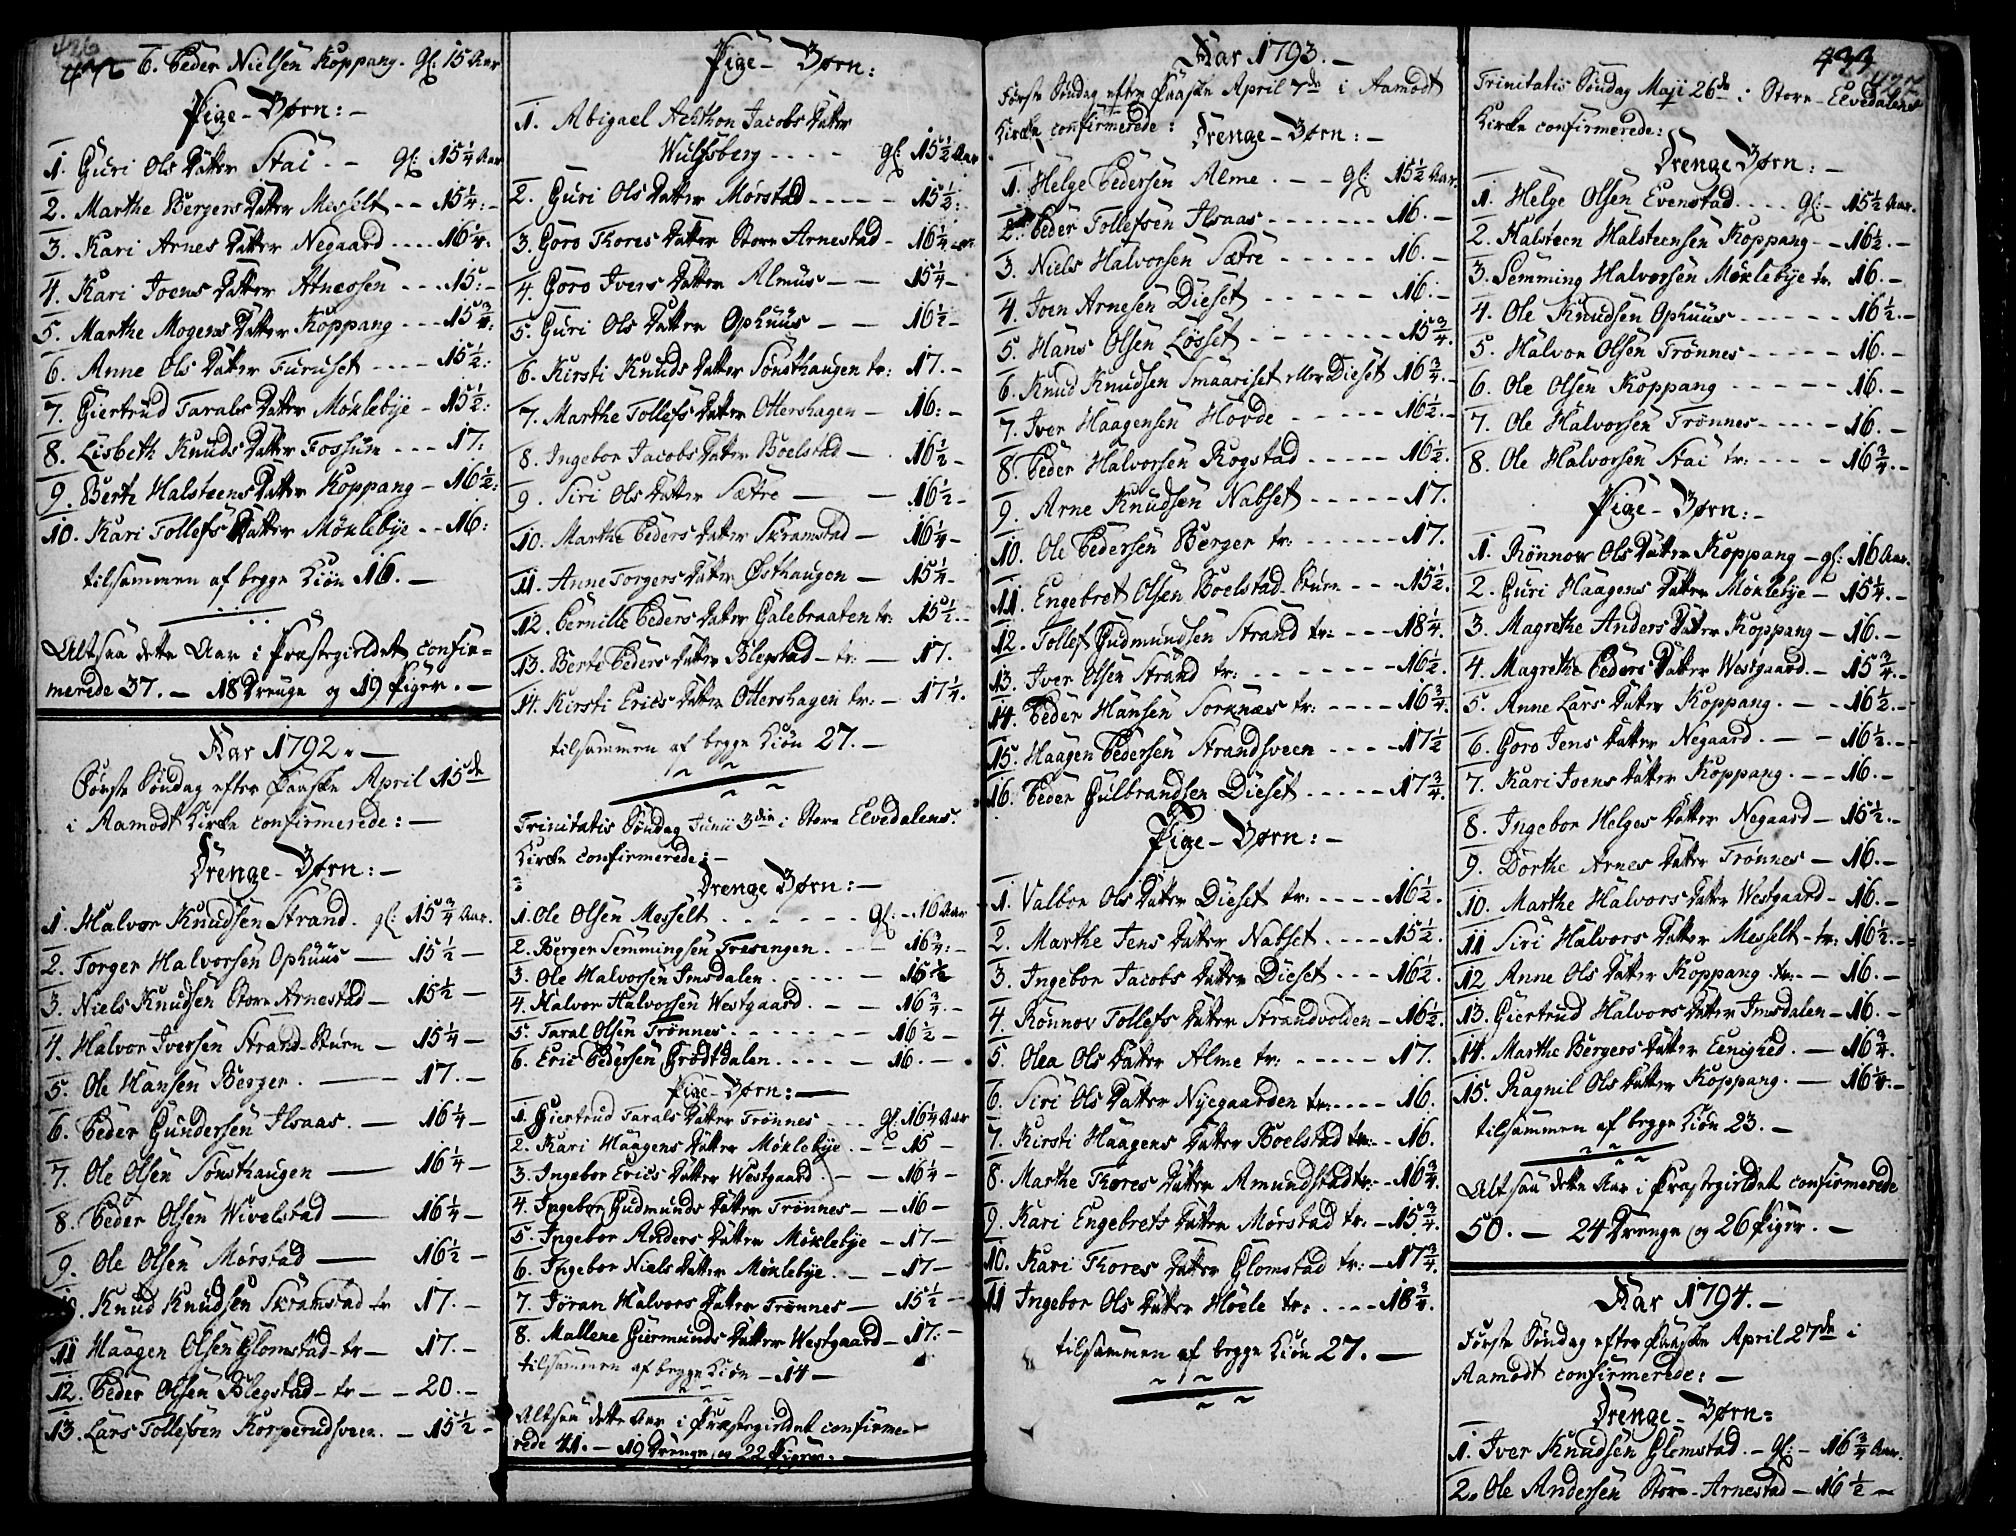 426
6. Peder Nielsen Koppang. Gl: 15 Aar
Pige-Børn:-
1. Guri Ols Datter Stai - - gl: 15 1/4 Aar
2. Marthe Bergers Datter Messelt - - 15 1/4:-
3. Kari Arnes Datter Negaard - - - 16 1/4:
4. Kari Joens Datter Atneosen - - - 15:-
5. Marthe Mogens Datter Koppang - - - 15 3/4:
6. Anne Ols Datter Furuset - - - - 15 1/2:
7. Giertrud Tarals Datter Møklebye - 15 1/2:
8. Lisbeth Knuds Datter Fossum - - - 17:
9. Berte Halsteens Datter Koppang - 16 1/2:
10. Kari Tollefs Datter Møklebye - - 16:
tilsammen af begge Kiön 16. -
Altsaa dette Aar i Præstegieldet confir=
merede 37. - 18 Drenge og 19 Piger. -
Aar 1792. -
Første Søndag efter Paaske April 15de
i Aamodt Kirke confirmerede: -
Drenge-Børn: -
1. Halvor Knudsen Strand. gl: 15 3/4 Aar.
2. Torger Halvorsen Ophuus - 15 1/2 -
3. Niels Knudsen Store Arnestad - 15 1/2 -
4. Halvor Iversen Strand-Stuen - 15 1/4 -
5. Ole Hansen Berger. - 17. -
6. Peder Gundersen Ilsaas. - 16 1/4 -
7. Ole Olsen Sønsthaugen - 16 1/4 -
8. Peder Olsen Wivelstad - 16 1/4 -
9. Ole Olsen Mørstad - 16 1/2 -
10. Knud Knudsen Skramstad tr 17. -
11 Haagen Olsen Glomstad - tr - 17. -
12. Peder Olsen Blegstad - tr - - 20. -
13. Lars Tollefsen Korperudsveen. - 15 1/2 -
Pige-Børn:
1. Abigael Achthon Jacobs Datter
Wulfsberg - - - - gl: 15 1/2 Aar
2. Guri Ols Datter Mørstad - - - - - 15 1/2:
3. Goro Thores Datter Store Arnestad - 16 1/4 -
4. Goro Ivers Datter Almus - - 15 1/4 -
5. Guri Ols Datter Ophuus - - 16 1/2 -
6. Kirsti Knuds Datter Sønsthaugen tr: 17. -
7. Marthe Tollefs Datter Ottershagen - 16: -
8. Ingebor Jacobs Datter Boelstad - 16 1/2 -
9. Siri Ols Datter Sætre - - 16 1/2 -
10. Marthe Peders Datter Skramstad - 16 1/4 -
11. Anne Torgers Datter Østhaugen - 15 1/4 -
12. Pernille Peders Datter Galebraaten tr: 15 1/2. -
13. Berte Peders Datter Blegstad - tr: - 17.
14. Kirsti Erics Datter Ottershagen tr: - 17 1/4.
tilsammen af begge Kiön 27. -
Trinitatis Søndag Junii 3die i Store Elvedalens
Kirke confirmerede: -
Drenge Børn: -
1. Ole Olsen Messelt - - - - - - gl: - 16 Aar
2. Berger Semmingsen Tresengen. - - - 16 3/4: -
3. Ole Halvorsen Imsdalen. - - - - 15 1/2
4. Halvor Halvorsen Westgaard. - - 16 3/4. -
5. Taral Olsen Trønnes - - - - - - 16 1/2 -
6. Eric Pedersen Grødtdalen. - - - - 16. - -
Pige-Børn: -
1. Giertrud Tarals Datter Trønnes - - - gl: 16 1/4 Aar
2. Kari Haagens Datter Møklebye. - - 15 -
3. Ingebor Erics Datter Westgaard. - - 16 1/4 -
4. Ingebor Gudmunds Datter Trønnes - - 16 -
5. Ingebor Anders Datter Møklebye - 17 -
6. Ingebor Niels Datter Møklebye. - - 17 -
7. Jøran Halvors Datter Trønnes - 15 1/2 -
8. Mallene Giermunds Datter Westgaard - 17: -
tilsammen af begge Kiön - 14 -
Altsaa dette Aar i Præstegieldet confirme-
rede 41. - 19 Drenge og 22 Piger. -
Aar 1793. -
Første Søndag efter Paaske April 7de i Aamodt
Kirke confirmerede: Drenge-Børn: -
1. Helge Pedersen Alme. - - gl: 15 1/2 Aar.
2. Peder Tollefsen Ilsaas - - - - - - 16. -
3. Niels Halvorsen Sætre - - - - - 16. -
4. Joen Arnesen Dieset - - - - - 16. -
5. Hans Olsen Løsset - - - - - - 15 3/4.
6. Knud Knudsen Smaariset eller Dieset 16 3/4. -
7. Iver Haagensen Hovde - - - - - 16 1/2. -
8. Peder Halvorsen Rogstad - - - - - 16 1/2.
9. Arne Knudsen Nabset - - - - - 17.
10. Ole Pedersen Berger tr: - - - - - - 17.
11. Engebret Olsen Boelstad-Stuen - - - 15 1/2.
12. Tollef Gudmundsen Strand tr: - - - 18 1/4.
13. Iver Olsen Strand tr: - - - - - - 16 1/2.
14. Peder Hansen Sorknæs tr: - - - - 16 3/4.
15. Haagen Pedersen Strandsveen - - - - 17 1/2
16. Peder Gulbrandsen Dieset - - - - - 17 3/4.
Pige-Børn: -
1. Valbor Ols Datter Dieset tr: - - - - 16 1/2.
2. Marthe Jens Datter Nabset - - - - 15 1/2.
3. Ingebor Jacobs Datter Dieset - - - 16 1/2.
4. Rønnov Tollefs Datter Strandvolden - 16 1/2.
5. Olea Ols Datter Alme tr: - - - - - 17.
6. Siri Ols Datter Nyegaarden tr: - - - - 16.
7. Kirsti Haagens Datter Boelstad tr: - 16.
8. Marthe Thores Datter Amundstad tr: - 16 3/4.
9. Kari Engebrets Datter Mørstad tr: - 15 3/4.
10. Kari Thores Datter Glomstad tr: - 17 3/4.
11 Ingebor Ols Datter Hoele tr: - - - - 18 3/4.
tilsammen af begge Kiön 27. -
427
Trinitatis Søndag Maji 26de i Store-Elvedalens
Kirke confirmerede:
Drenge Børn: -
1. Helge Olsen Evenstad. - - - gl: - 15 1/2 Aar.
2. Halsteen Halsteensen Koppang - - 16 1/2. -
3. Semming Halvorsen Møklebye tr. 16. -
4. Ole Knudsen Ophuus - - - - - - 16 1/2. -
5. Halvor Olsen Trønnes - - - - - 16. -
6. Ole Olsen Koppang - - - - - - 16. -
7. Ole Halvorsen Trønnes - - - - 16. -
8. Ole Halvorsen Stai tr: - - - 16 3/4. -
Pige-Børn: -
1. Rønnow Ols Datter Koppang - gl: 16 Aar.
2. Guri Haagens Datter Møklebye - 15 1/4. -
3. Magrethe Anders Datter Koppang - 16. -
4. Magrethe Peders Datter Westgaard - 15 3/4. -
5. Anne Lars Datter Koppang. - - 16 1/2. -
6. Goro Jens Datter Negaard. - - 16 1/2. -
7. Kari Joens Datter Koppang. - - 16. -
8. Ingebor Helges Datter Negaard - 15 1/2. -
9. Dorthe Arnes Datter Trønnes - 16. -
10. Marthe Halvors Datter Westgaard - 16. -
11 Siri Halvors Datter Messelt - tr: 16 1/2. -
12 Anne Ols Datter Koppang tr: - 16. -
13. Giertrud Halvors Datter Imsdalen - 16. -
14. Marthe Bergers Datter Eenighed. - 16 3/4.
15. Ragnil Ols Datter Koppang. - 16 1/4: -
tilsammen af begge Kiön 23. -
Altsaa dette Aar i Præstegieldet confirmerede
50. - 24 Drenge og 26 Piger. -
Aar 1794. -
Første Søndag efter Paaske April 27de i
Aamodt confirmerede: -
Drenge-Børn:
1. Iver Knudsen Glomstad. - gl: - 16 3/4 Aar.
2. Ole Andersen Store-Arnestad - 16 1/2 -